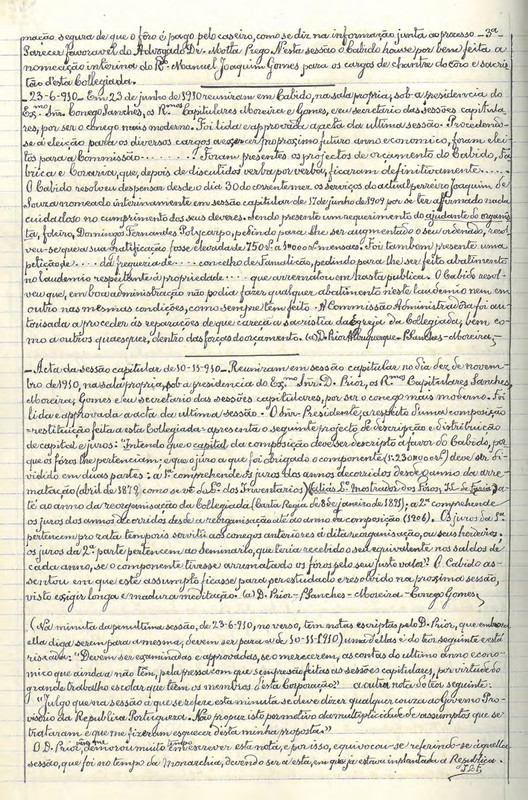 mação segura de que o fôro é pago pelo caseiro, como se diz na informação junta ao processo - 3ª
Parecer favoravel do Advogado Dr. Motta Prego. N'esta sessão o Cabido houve por bem feita a
nomeação interina do Rdo. Manuel Joaquim Gomes para os cargos de chantre do côro e sacris-
tão d'esta Collegiada.
- 23-6-910 - Em 23 de junho de 1910 reuniram em Cabido, na sala propria, sob a presidencia do
Exmo. Snr. Conego Sanches, os Rmos Capitulares Moreira e Gomes, e eu secretario das sessões capitula-
res, por ser o conego mais moderno. Foi lida e approvada a acta da ultima sessão. Procedendo-
se á eleição para os diversos cargos a exercer no proximo futuro anno economico, foram elei-
tos para a Commissão ........ Foram presentes os projectos de orçamento do Cabido, Fa-
brica e Conaria, que, depois de discutidos verba por verba, ficaram definitivamente ......
O Cabido resolveu despensar desde o dia 30 do corrente mez os serviços do actual perreiro Joaquim de
Souza nomeado interinamente em sessão capitular de 17 de junho de 1909 por se ter afirmado nada
cuidadoso no cumprimento dos seus deveres. Sendo presente um requerimento do ajudante do organis-
ta, foleiro, Domingos Fernandes Polycarpo, pedindo para lhe ser augmentado o seu ordenado, resol-
veu-se que a sua gratificação fosse elevida de 750 rs. a 1$000 rs. mensaes. Foi tambem presente uma
petição de .... da freguezia de ..... concelho de Famalicão, pedindo para lhe ser feito abatimento
no laudemio respeitante á propriedade ..... que arrematou em hasta publica. O Cabido resol-
veu que, em boa administração não podia fazer qualquer abatimento n'este laudemio nem em
outro nas mesmas condições, como sempre tem feito. A Commissão Administradora foi au-
torisada a proceder ás reparações de que careça a sacristia da Egreja da Collegiada, bem co-
mo a outros quaesquer, dentro das forças do orçamento. (a) D. Prior Albuquerque - Sanches - Moreira,
- Acta da sessão capitular de 10-11-910 - Reuniram em sessão capitular no dia dez de novem-
bro de 1910, na sala propria, sob a presidencia do Exmo. Snr. D. Prior, os Rmos Capitulares Sanches,
Moreira, Gomes e eu secretario das sessões capitulares, por ser o conego mais moderno. Foi
lida e approvada a acta da ultima sessão. O Snr. Presidente, a respeito d'uma composição
- restituição feita a esta Collegiada - apresenta o seguinte projecto de descripção e distribuição
de capital e juros: "Intendo que o capital da composição deve ser descripto a favor do Cabido, por-
que os fóros lhe pertenciam: e que o juro a que foi obrigado o componente (1:230$000 rs) deve ser di-
vidido em duas partes: a 1ª comprehende os juros dos annos decorridos desde o anno da arre-
matação (abril de 1879, como se vê do L.º dos Inventarios)
té ao anno da reorganisação da Collegiada (Carta Regia de 8 de janeiro de 1891); a 2ª comprehende
os juros dos annos decorridos desde a reorganisação até ao anno da composição (1906). Os juros da 1ª
pertencem pro rata temporis servitii aos conegos anteriores á dita reorganisação, ou seus herdeiros.
os juros da 2ª parte pertencem ao Seminario, que teria recebido o seu equivalente nos saldos de
cada anno, se o componente tivesse arrematado os fóros pelo seu justo valor". O Cabido as-
sentou em que este assumpto ficasse para ser estudado e resolvido na proxima sessão,
visto exigir longa e madura meditação. (a) D. Prior - Sanches - Moreira - Conego Gomes,
(Na minuta da penultima sessão, de 23-6-910, no verso, tem notas escriptas pelo D. Prior, que embora
ella diga serem para a mesma, devem ser para a de 10-11-910) uma d'ellas é do teor seguinte e está
riscada: "Devem ser examinadas e approvadas, se o merecerem, as contas do ultimo anno econo-
mico que ainda o não têm, pela pressa com que sempre são feitas as sessões capitulares, por virtude do
grande trabalho escolar que tem os membros d'esta Corporação" a outra nota do teor seguinte:
"Julgo que na sessão a que se refere esta minuta se deve dizer qualquer couza ao Governo Pro-
visorio da Republica Portugueza. Não propuz isto por motivo da multiplicidade de assumptos que se
trataram e que me fizeram esquecer desta minha proposta."
O D. Prior, parece que demorou muito tempo em escrever esta nota, e por isso, equivocou-se referindo-se áquella
sessão, que foi no tempo da Monarchia, devendo ser a esta, em que já estava implantada a Republica